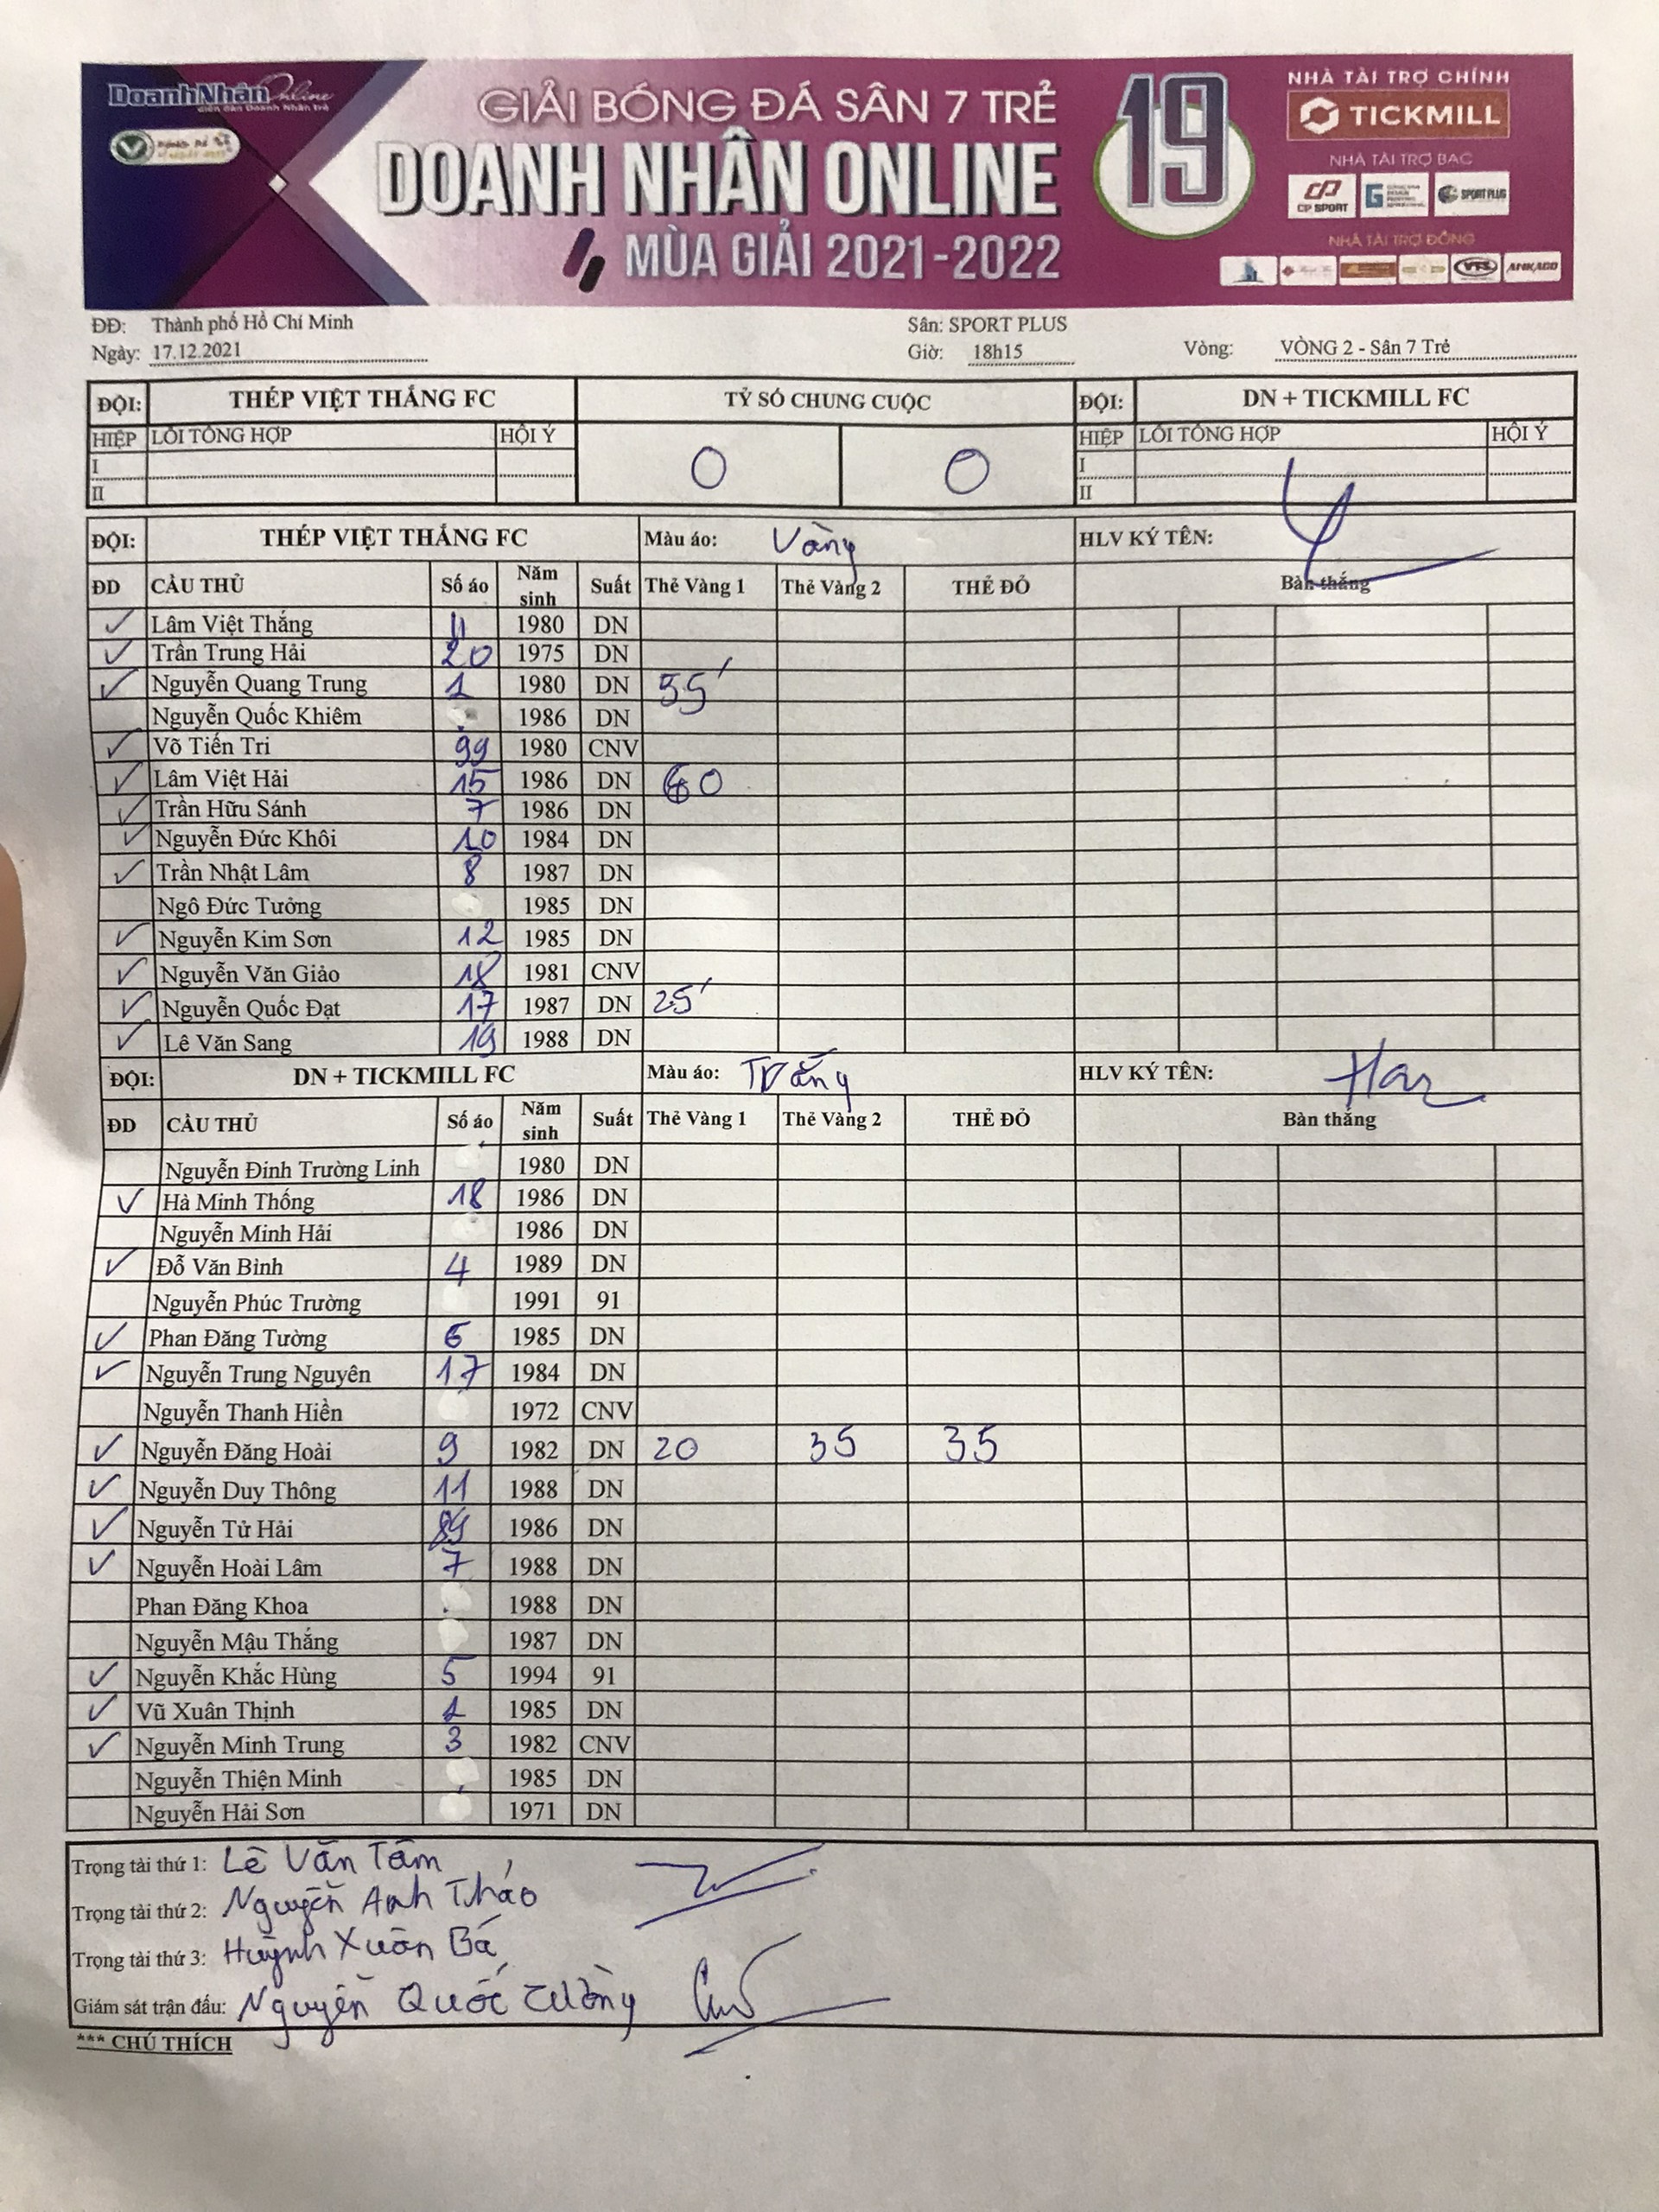 DoanhNhân Online
GIẢI BÓNG ĐÁ SÂN 7 TRẺ
DOANH NHÂN ONLINE
MÙA GIẢI 2021-2022
19
NHÀ TÀI TRỢ CHÍNH
TICKMILL
NHÀ TÀI TRỢ BẠC
CP SPORT SPORT PLUS
NHÀ TÀI TRỢ ĐỒNG
VTS ANKACO
ĐĐ: Thành phố Hồ Chí Minh Sân: SPORT PLUS
Ngày: 17.12.2021 Giờ: 18h15 Vòng: VÒNG 2 - Sân 7 Trẻ
ĐỘI: THÉP VIỆT THẮNG FC TỶ SỐ CHUNG CUỘC ĐỘI: DN + TICKMILL FC
HIỆP LỖI TỔNG HỢP HỘI Ý 0 0 HIỆP LỖI TỔNG HỢP HỘI Ý
I I
II II
ĐỘI: THÉP VIỆT THẮNG FC Màu áo: Vàng HLV KÝ TÊN:
ĐD CẦU THỦ Số áo Năm sinh Suất Thẻ Vàng 1 Thẻ Vàng 2 THẺ ĐỎ Bàn thắng
Lâm Việt Thắng 11 1980 DN
Trần Trung Hải 20 1975 DN
Nguyễn Quang Trung 1 1980 DN 55'
Nguyễn Quốc Khiêm 1986 DN
Võ Tiến Tri 99 1980 CNV
Lâm Việt Hải 15 1986 DN 60
Trần Hữu Sánh 7 1986 DN
Nguyễn Đức Khôi 10 1984 DN
Trần Nhật Lâm 8 1987 DN
Ngô Đức Tưởng 1985 DN
Nguyễn Kim Sơn 12 1985 DN
Nguyễn Văn Giảo 18 1981 CNV
Nguyễn Quốc Đạt 17 1987 DN 25'
Lê Văn Sang 19 1988 DN
ĐỘI: DN + TICKMILL FC Màu áo: Trắng HLV KÝ TÊN:
ĐD CẦU THỦ Số áo Năm sinh Suất Thẻ Vàng 1 Thẻ Vàng 2 THẺ ĐỎ Bàn thắng
Nguyễn Đinh Trường Linh 1980 DN
Hà Minh Thống 18 1986 DN
Nguyễn Minh Hải 1986 DN
Đỗ Văn Bình 4 1989 DN
Nguyễn Phúc Trường 1991 91
Phan Đăng Tường 6 1985 DN
Nguyễn Trung Nguyên 17 1984 DN
Nguyễn Thanh Hiền 1972 CNV
Nguyễn Đăng Hoài 9 1982 DN 20 35 35
Nguyễn Duy Thông 11 1988 DN
Nguyễn Tử Hải 89 1986 DN
Nguyễn Hoài Lâm 7 1988 DN
Phan Đăng Khoa 1988 DN
Nguyễn Mậu Thắng 1987 DN
Nguyễn Khắc Hùng 5 1994 91
Vũ Xuân Thịnh 1 1985 DN
Nguyễn Minh Trung 3 1982 CNV
Nguyễn Thiện Minh 1985 DN
Nguyễn Hải Sơn 1971 DN
Trọng tài thứ 1: Lê Văn Tâm
Trọng tài thứ 2: Nguyễn Anh Tháo
Trọng tài thứ 3: Huỳnh Xuân Bá
Giám sát trận đấu: Nguyễn Quốc Cường
*** CHÚ THÍCH